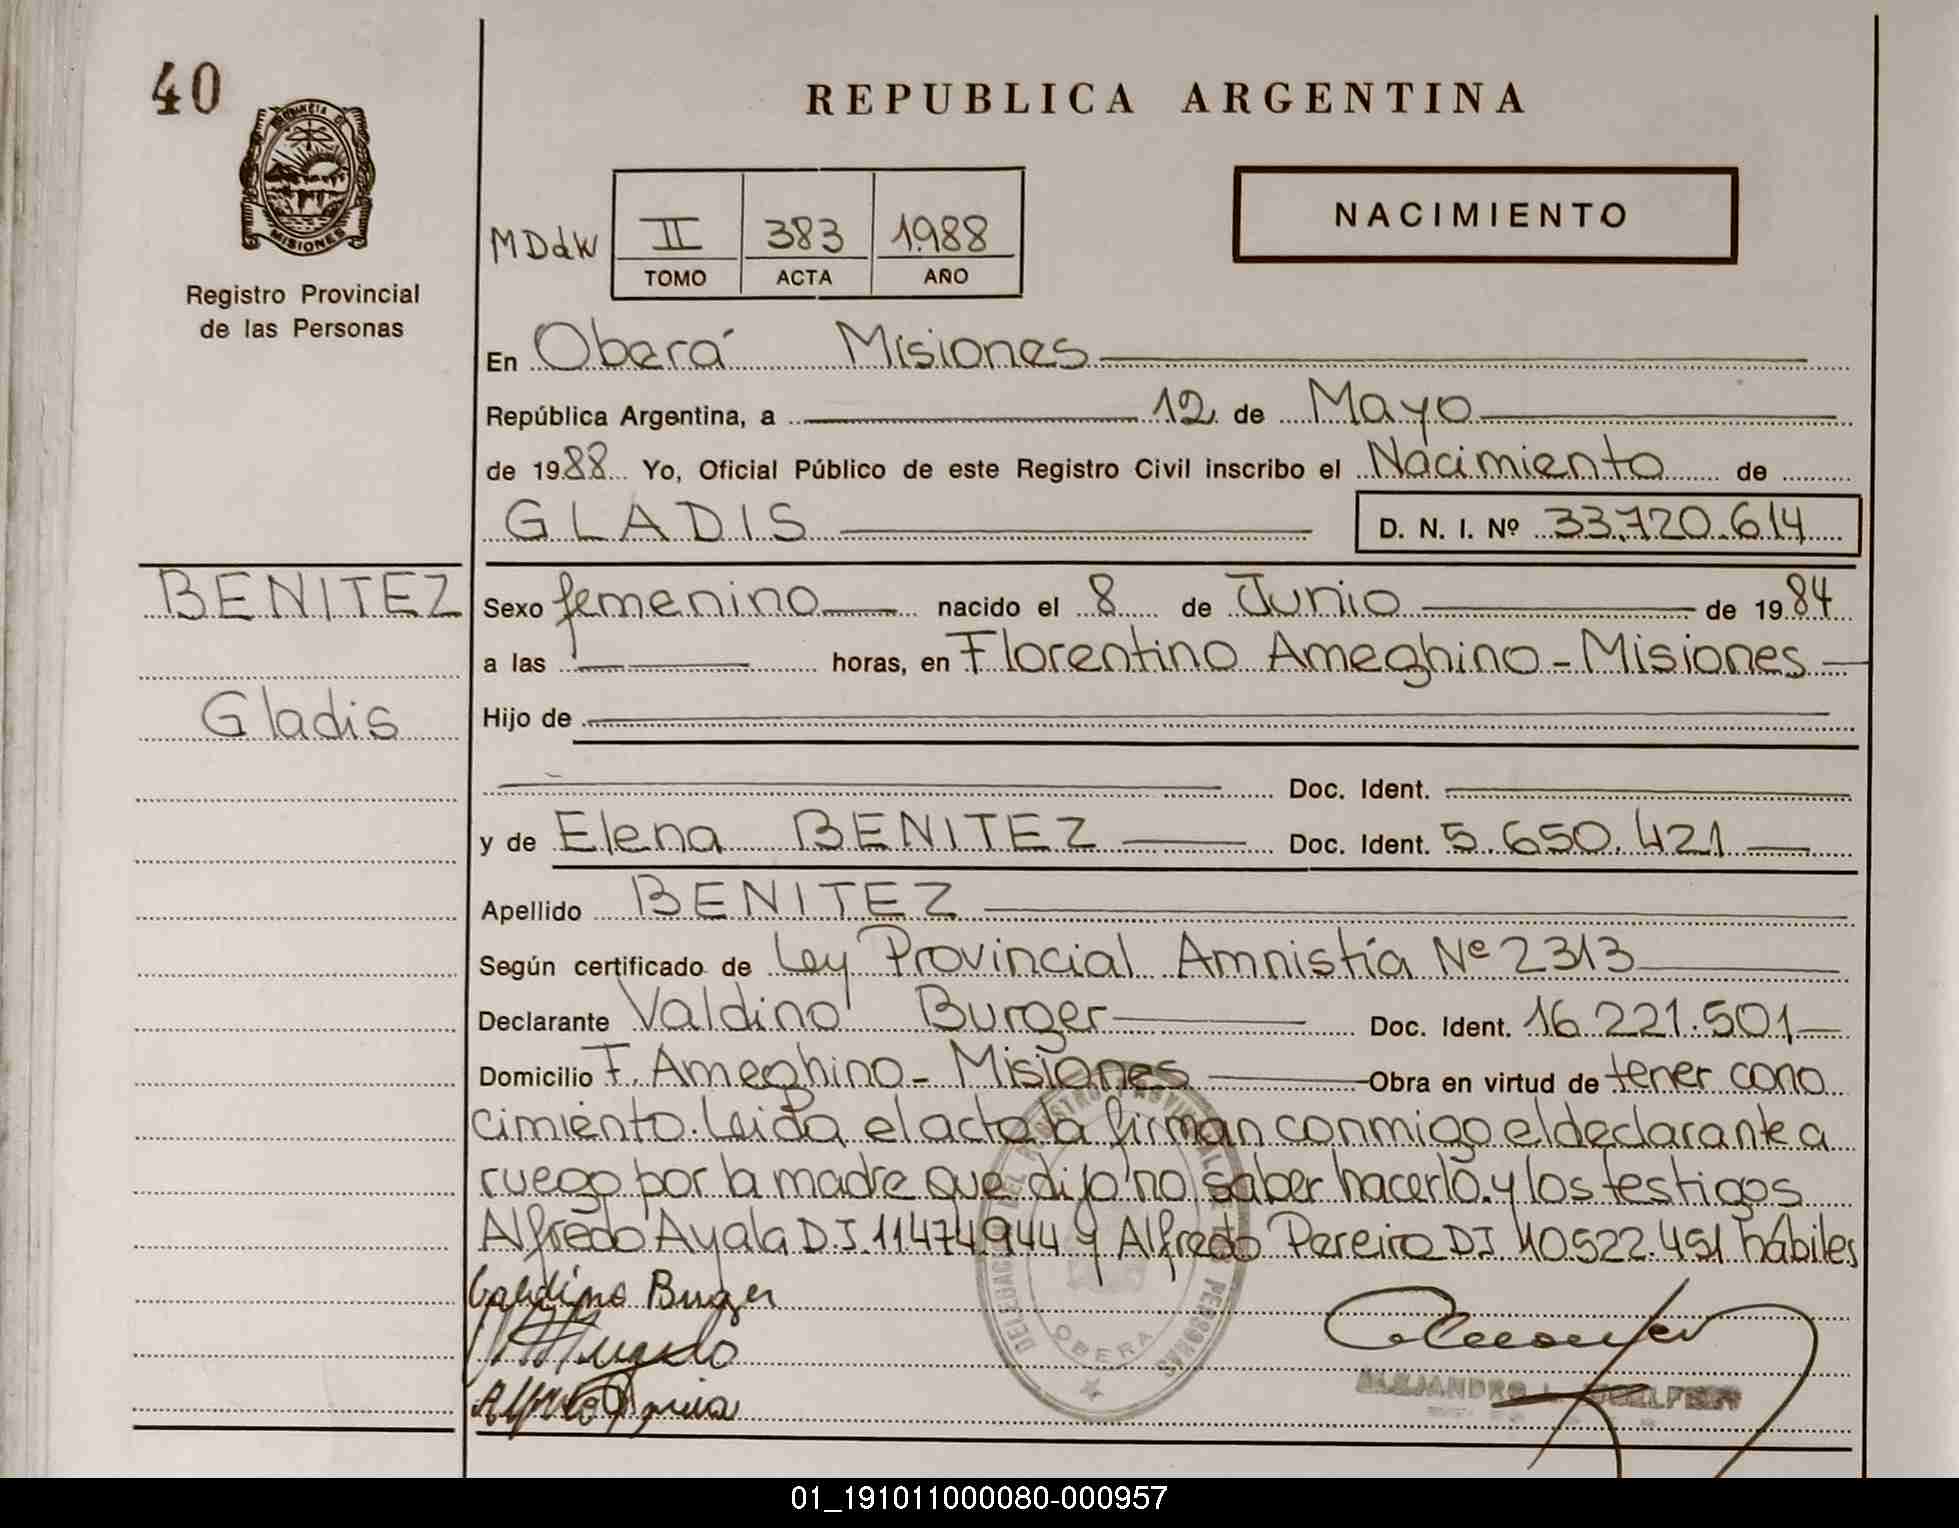 40
REPUBLICA ARGENTINA
PROVINCIA DE
MISIONES
Registro Provincial
de las Personas
MDdW II 383 1988
TOMO ACTA AÑO
NACIMIENTO
En Oberá Misiones
República Argentina, a 12 de Mayo
de 1988 Yo, Oficial Público de este Registro Civil inscribo el Nacimiento de
GLADIS D. N. I. Nº 33.720.614
BENITEZ
Gladis
Sexo femenino nacido el 8 de Junio de 1984
a las horas, en Florentino Ameghino - Misiones
Hijo de
Doc. Ident.
y de Elena BENITEZ Doc. Ident. 5.650.421
Apellido BENITEZ
Según certificado de Ley Provincial Amnistía Nº 2313
Declarante Valdino Burger Doc. Ident. 16.221.501
Domicilio F. Ameghino - Misiones Obra en virtud de tener cono
cimiento. Leida el acta la firman conmigo el declarante a
ruego por la madre que dijo no saber hacerlo y los testigos
Alfredo Ayala D.I. 11474.944 y Alfredo Pereira DI 10.522.451 hábiles
Valdino Burger
DELEGACION DEL REGISTRO PROVINCIAL DE LAS PERSONAS
OBERA
ALEJANDRO
01_191011000080-000957